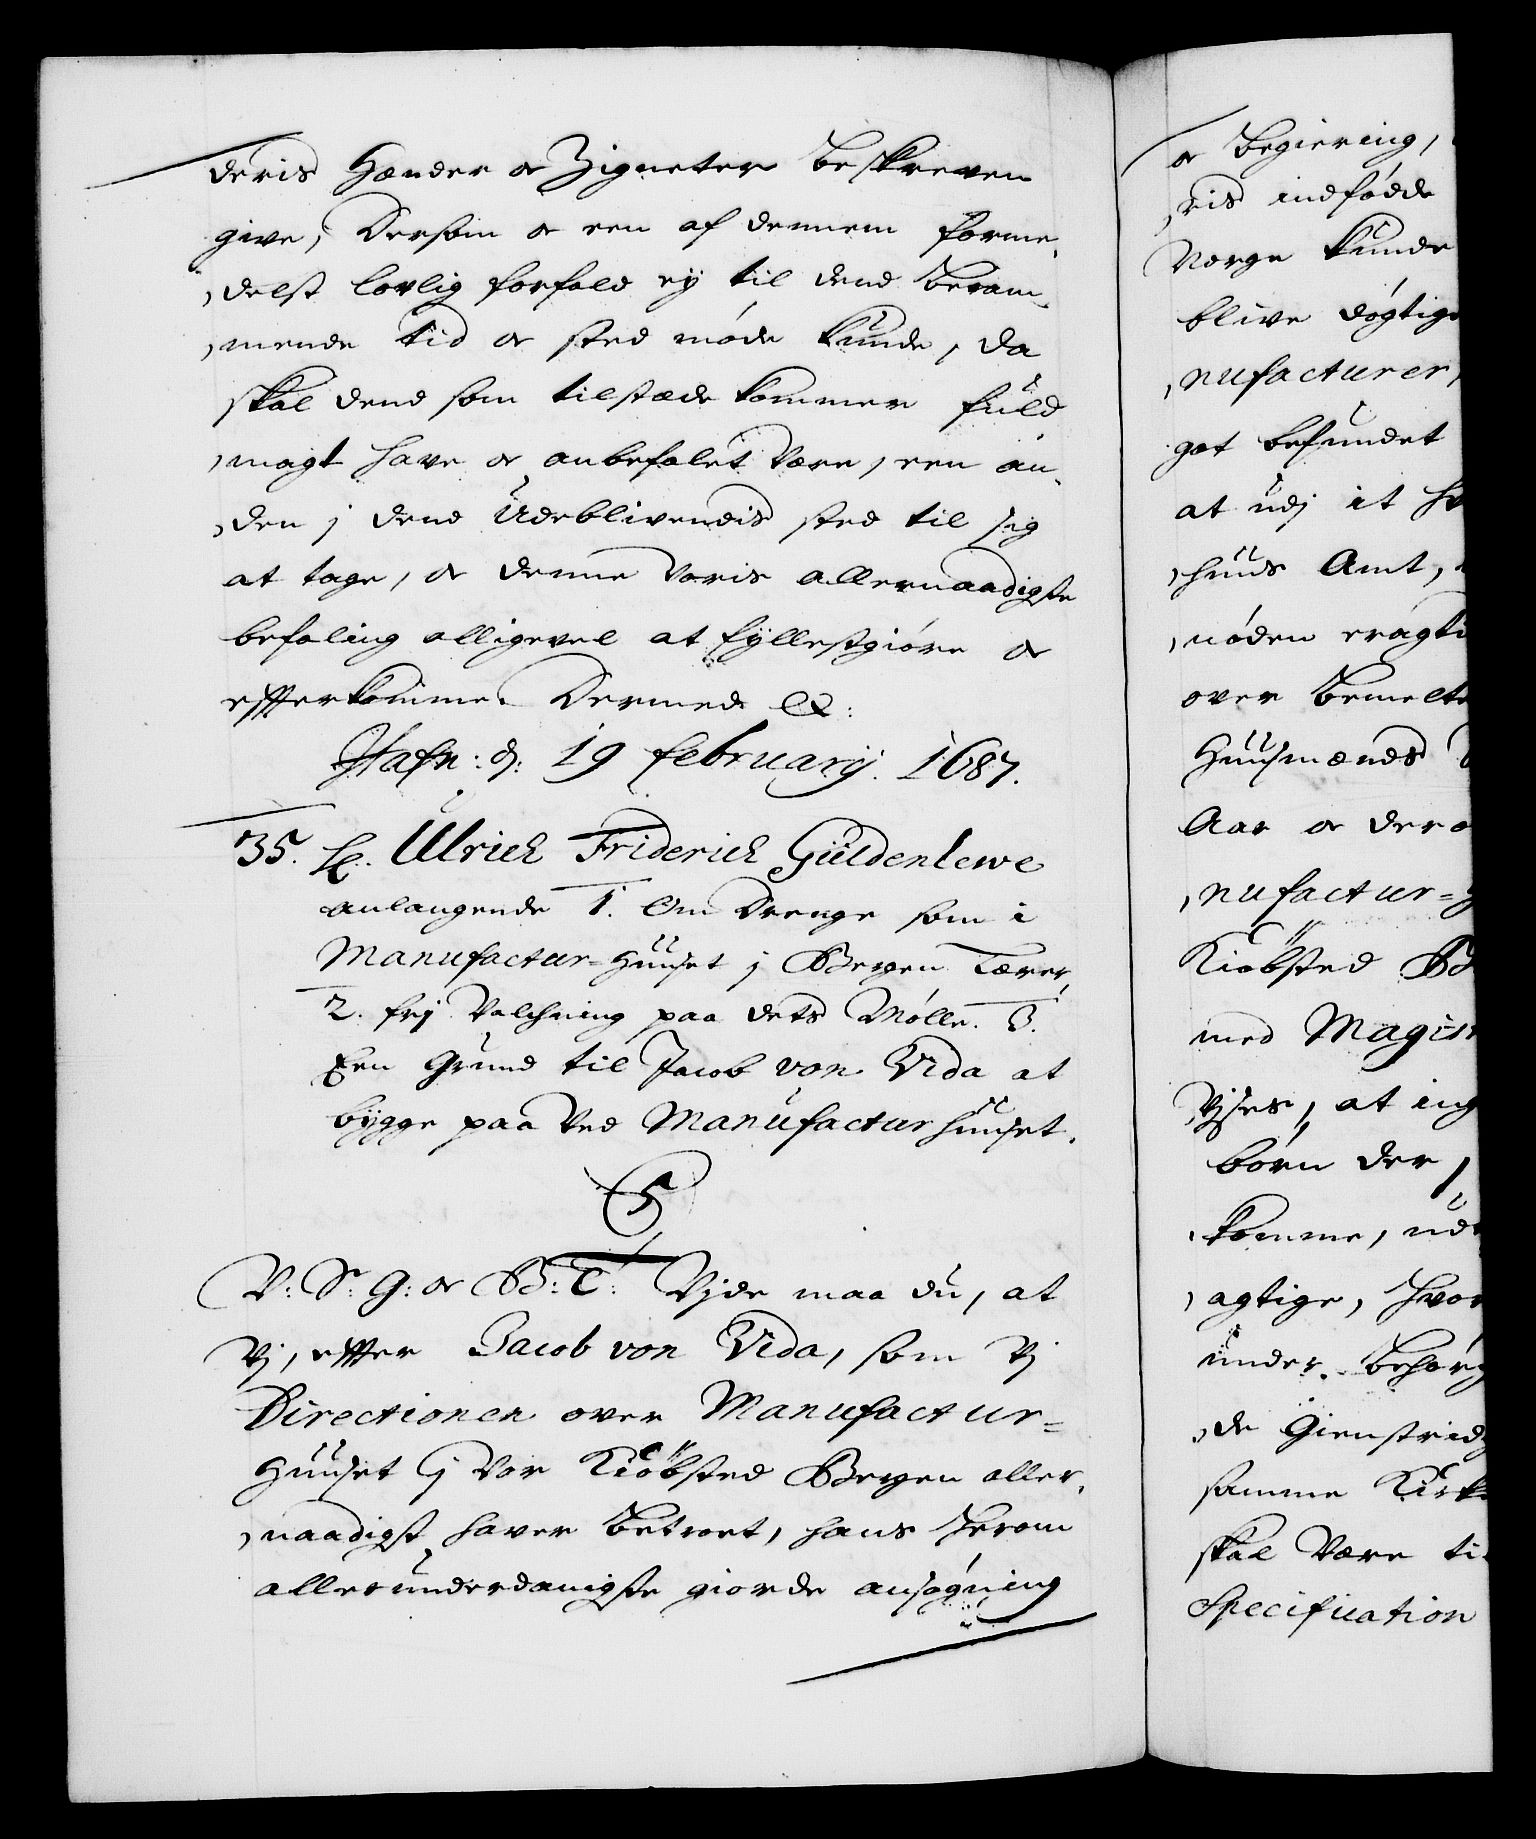 deris Hænder oc Zigneter beskreven
give, Dersom oc een af dennem forme,
,delst lovlig forfald ey til dend beram,
,mende tid oc sted møde kunde, da
skal dend som tilstæde kommer fuld,
,magt have oc anbefalet være, een an,
,den j dend Udeblivendis sted til sig
at tage, oc denne voris allernaadigste
befaling alligevel at fyllestgiøre oc
effterkomme. Dermed etc:
Hafn: d: 19 february. 1687.
35. Ulrich Friderich Güldenlewe
anlangende 1. Om Drenge som i
Manufactur-Huuset j Bergen Lærer,
2. frj Valchning paa dets Mølle. 3.
Een Grund til Jacob von Vida at
bygge paa ved Manufacturhuuset.
C5
V: S: G: oc B: T: Vjde maa du, at
Vj, effter Jacob von Vida, som Vj
Directionen over Manufactur-
Huuset j Vor Kiöbsted Bergen aller,
,naadigst haver betroet, hans herom
allerunderdanigste giorde ansøgning
oc begiering,
,ris indfødde
Norge kunde
blive døgtige
,nufacturer,
got befundet
at udj it
,huus Amt,
,nøden eragti
over bemelte
Huusmænds
Aar oc der
,nufactur-
Kiöbsted B
med Magist
Vjses, at ing
børn der,
komme, ude
,agtige, hvor
under behør
,de Gienstrid
samme Kirk
skal være ti
Specification